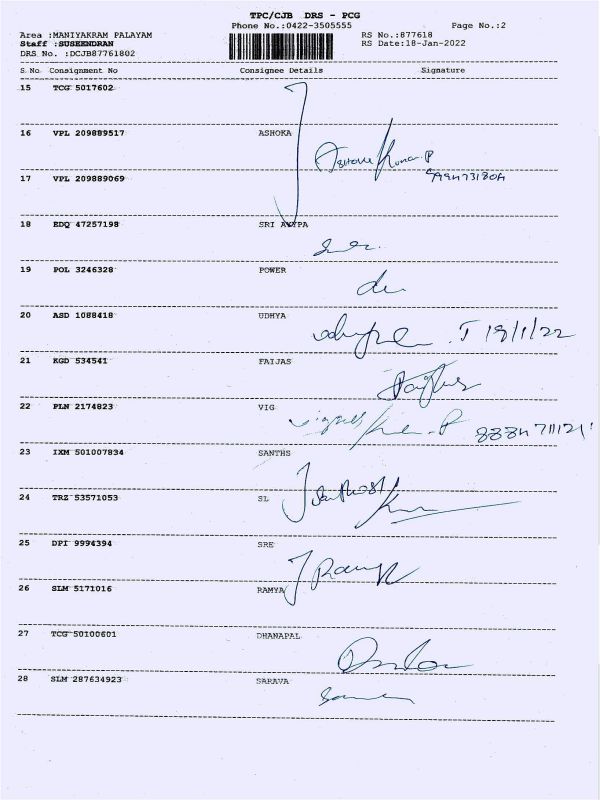 TPC/CJB DRS - PCG
Phone No.:0422-3505555 Page No.:2
Area :MANIYAKRAM PALAYAM RS No.:877618
Staff :SUSEENDRAN RS Date:18-Jan-2022
DRS No. :DCJB87761802
S No Consignment No Consignee Details Signature
15 TCG 5017602
16 VPL 209889517 ASHOKA
Ashok Kumar.P
17 VPL 209889069
18 EDQ 47257198 SRI AYYPA
19 POL 3246328 POWER
20 ASD 1088418 UDHYA
19/1/22
21 KGD 534541 FAIJAS
22 PLN 2174823 VIG
23 IXM 501007834 SANTHS
24 TRZ 53571053 SL
Santhosh Kumar
25 DPI 9994394 SRE
Ramya
26 SLM 5171016 RAMYA
27 TCG 50100601 DHANAPAL
28 SLM 287634923 SARAVA